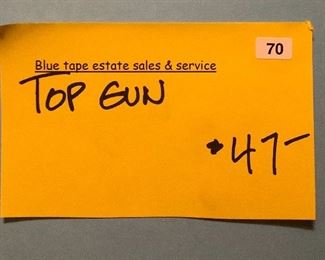 70
Blue tape estate sales & service
TOP GUN
$47-